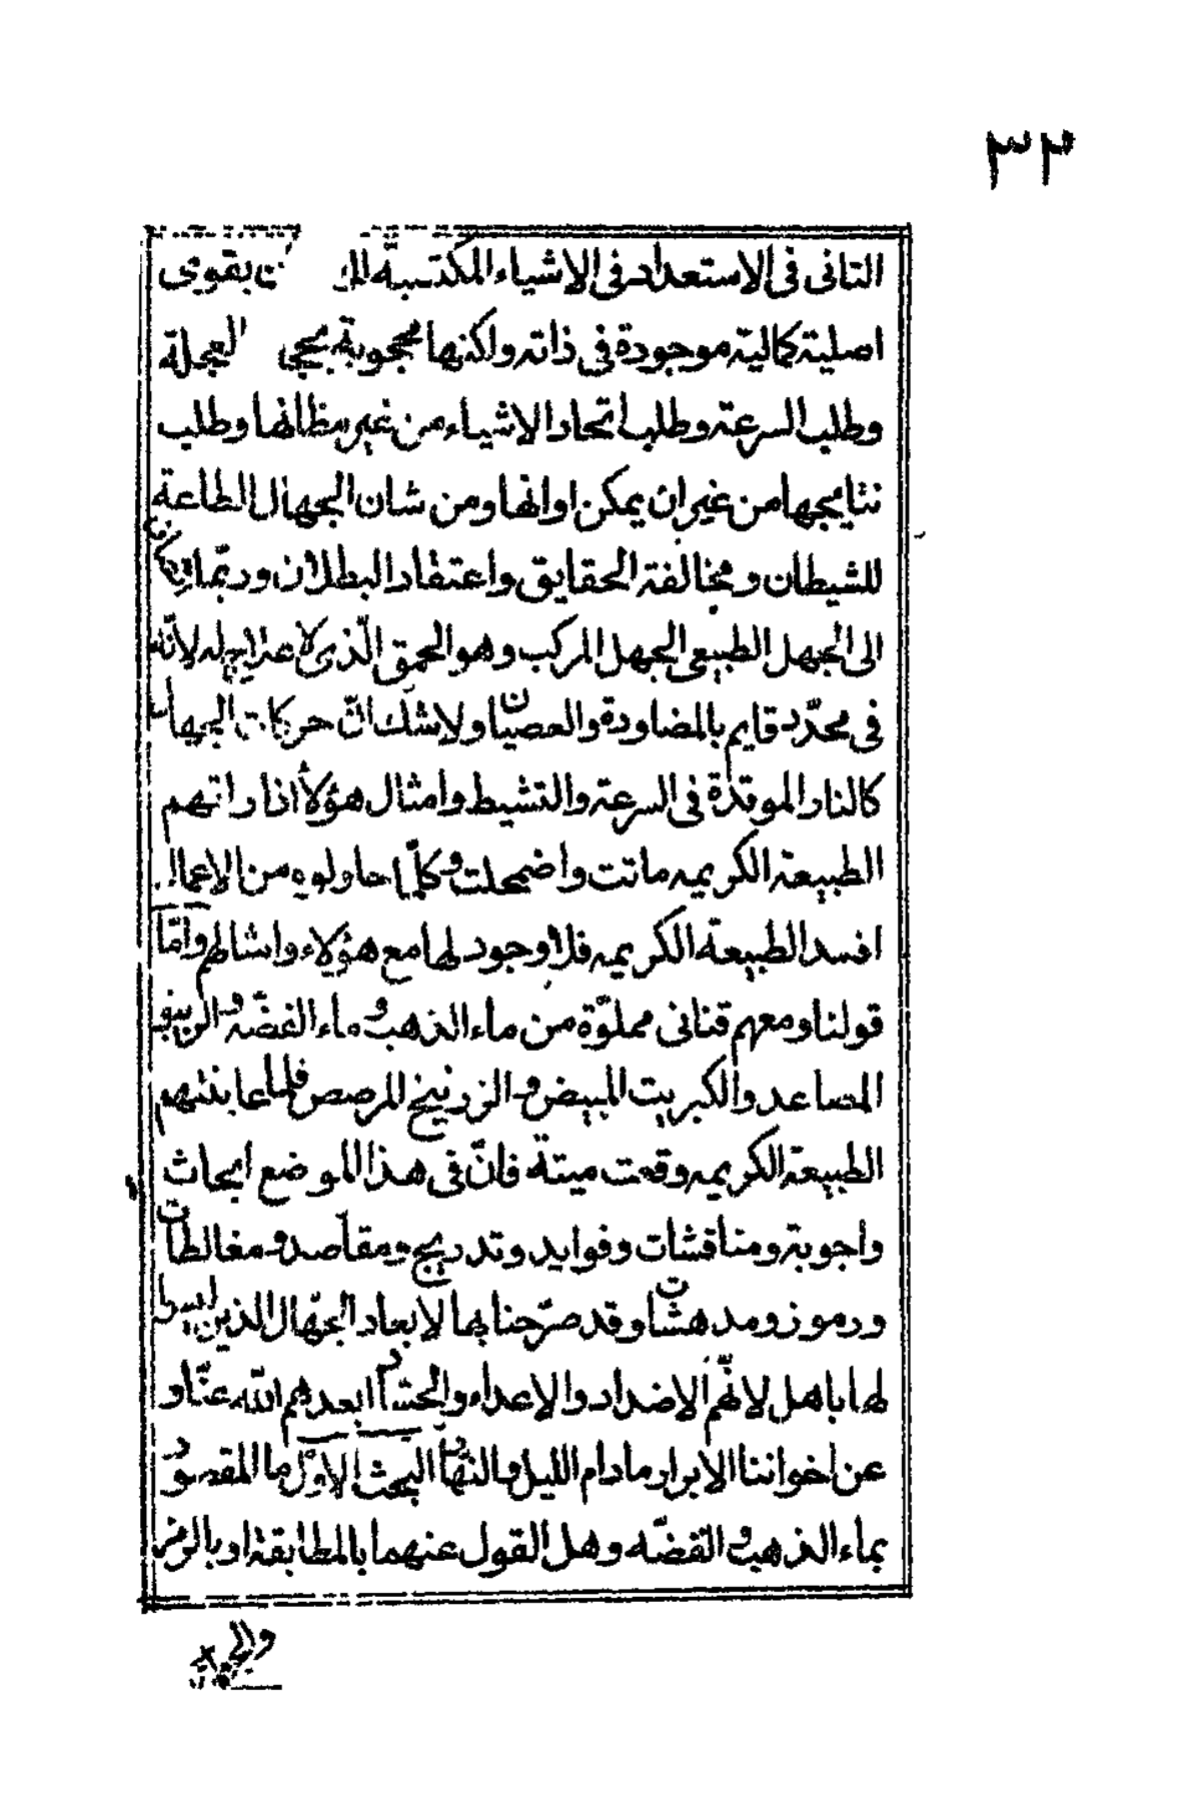 ٣٢
الثانى فى الاستعداد فى الاشياء المكتسبة بقوى
اصلية كمالية موجودة فى ذاته ولكنها محجوبة بحجب العجلة
وطلب السرعة وطلب اتحاد الاشياء من غير مظانها وطلب
نتايجها من غير ان يمكن اوانها ومن شان الجهال الطاعة
للشيطان ومخالفة الحقايق واعتقاد البطلان وربما
الى الجهل الطبيعى الجهل المركب وهو الحمق الذى لا علاج له لانه
فى محدد قايم بالمضاودة والعصيان ولا شك ان حركات الجهال
كالنار الموقدة فى السرعة والتشيط وامثال هؤلاء اذا راتهم
الطبيعة الكريمه ماتت واضمحلت وكلما حاولوه من الاعمال
افسد الطبيعة الكريمه فلا وجود لها مع هؤلاء وامثالهم واما
قولنا ومعهم قنانى مملوة من ماء الذهب وماء الفضة والزيبق
المصاعد والكبريت المبيض والزرنيخ المرصص فلما عاينتهم
الطبيعة الكريمه وقعت ميتة فان فى هذا الموضع ابحاث
واجوبة ومناقشات وفوايد وتدريج ومقاصد ومغالطات
ورموز ومدهشات وقد صرحنا بها لابعاد الجهال الذين ليسوا
لها باهل لانهم الاضداد والاعداء والحساد ابعدهم الله عنا و
عن اخواننا الابرار ما دام الليل والنهار البحث الاول ما المقصود
بماء الذهب والفضه وهل القول عنهما بالمطابقة او بالرمز